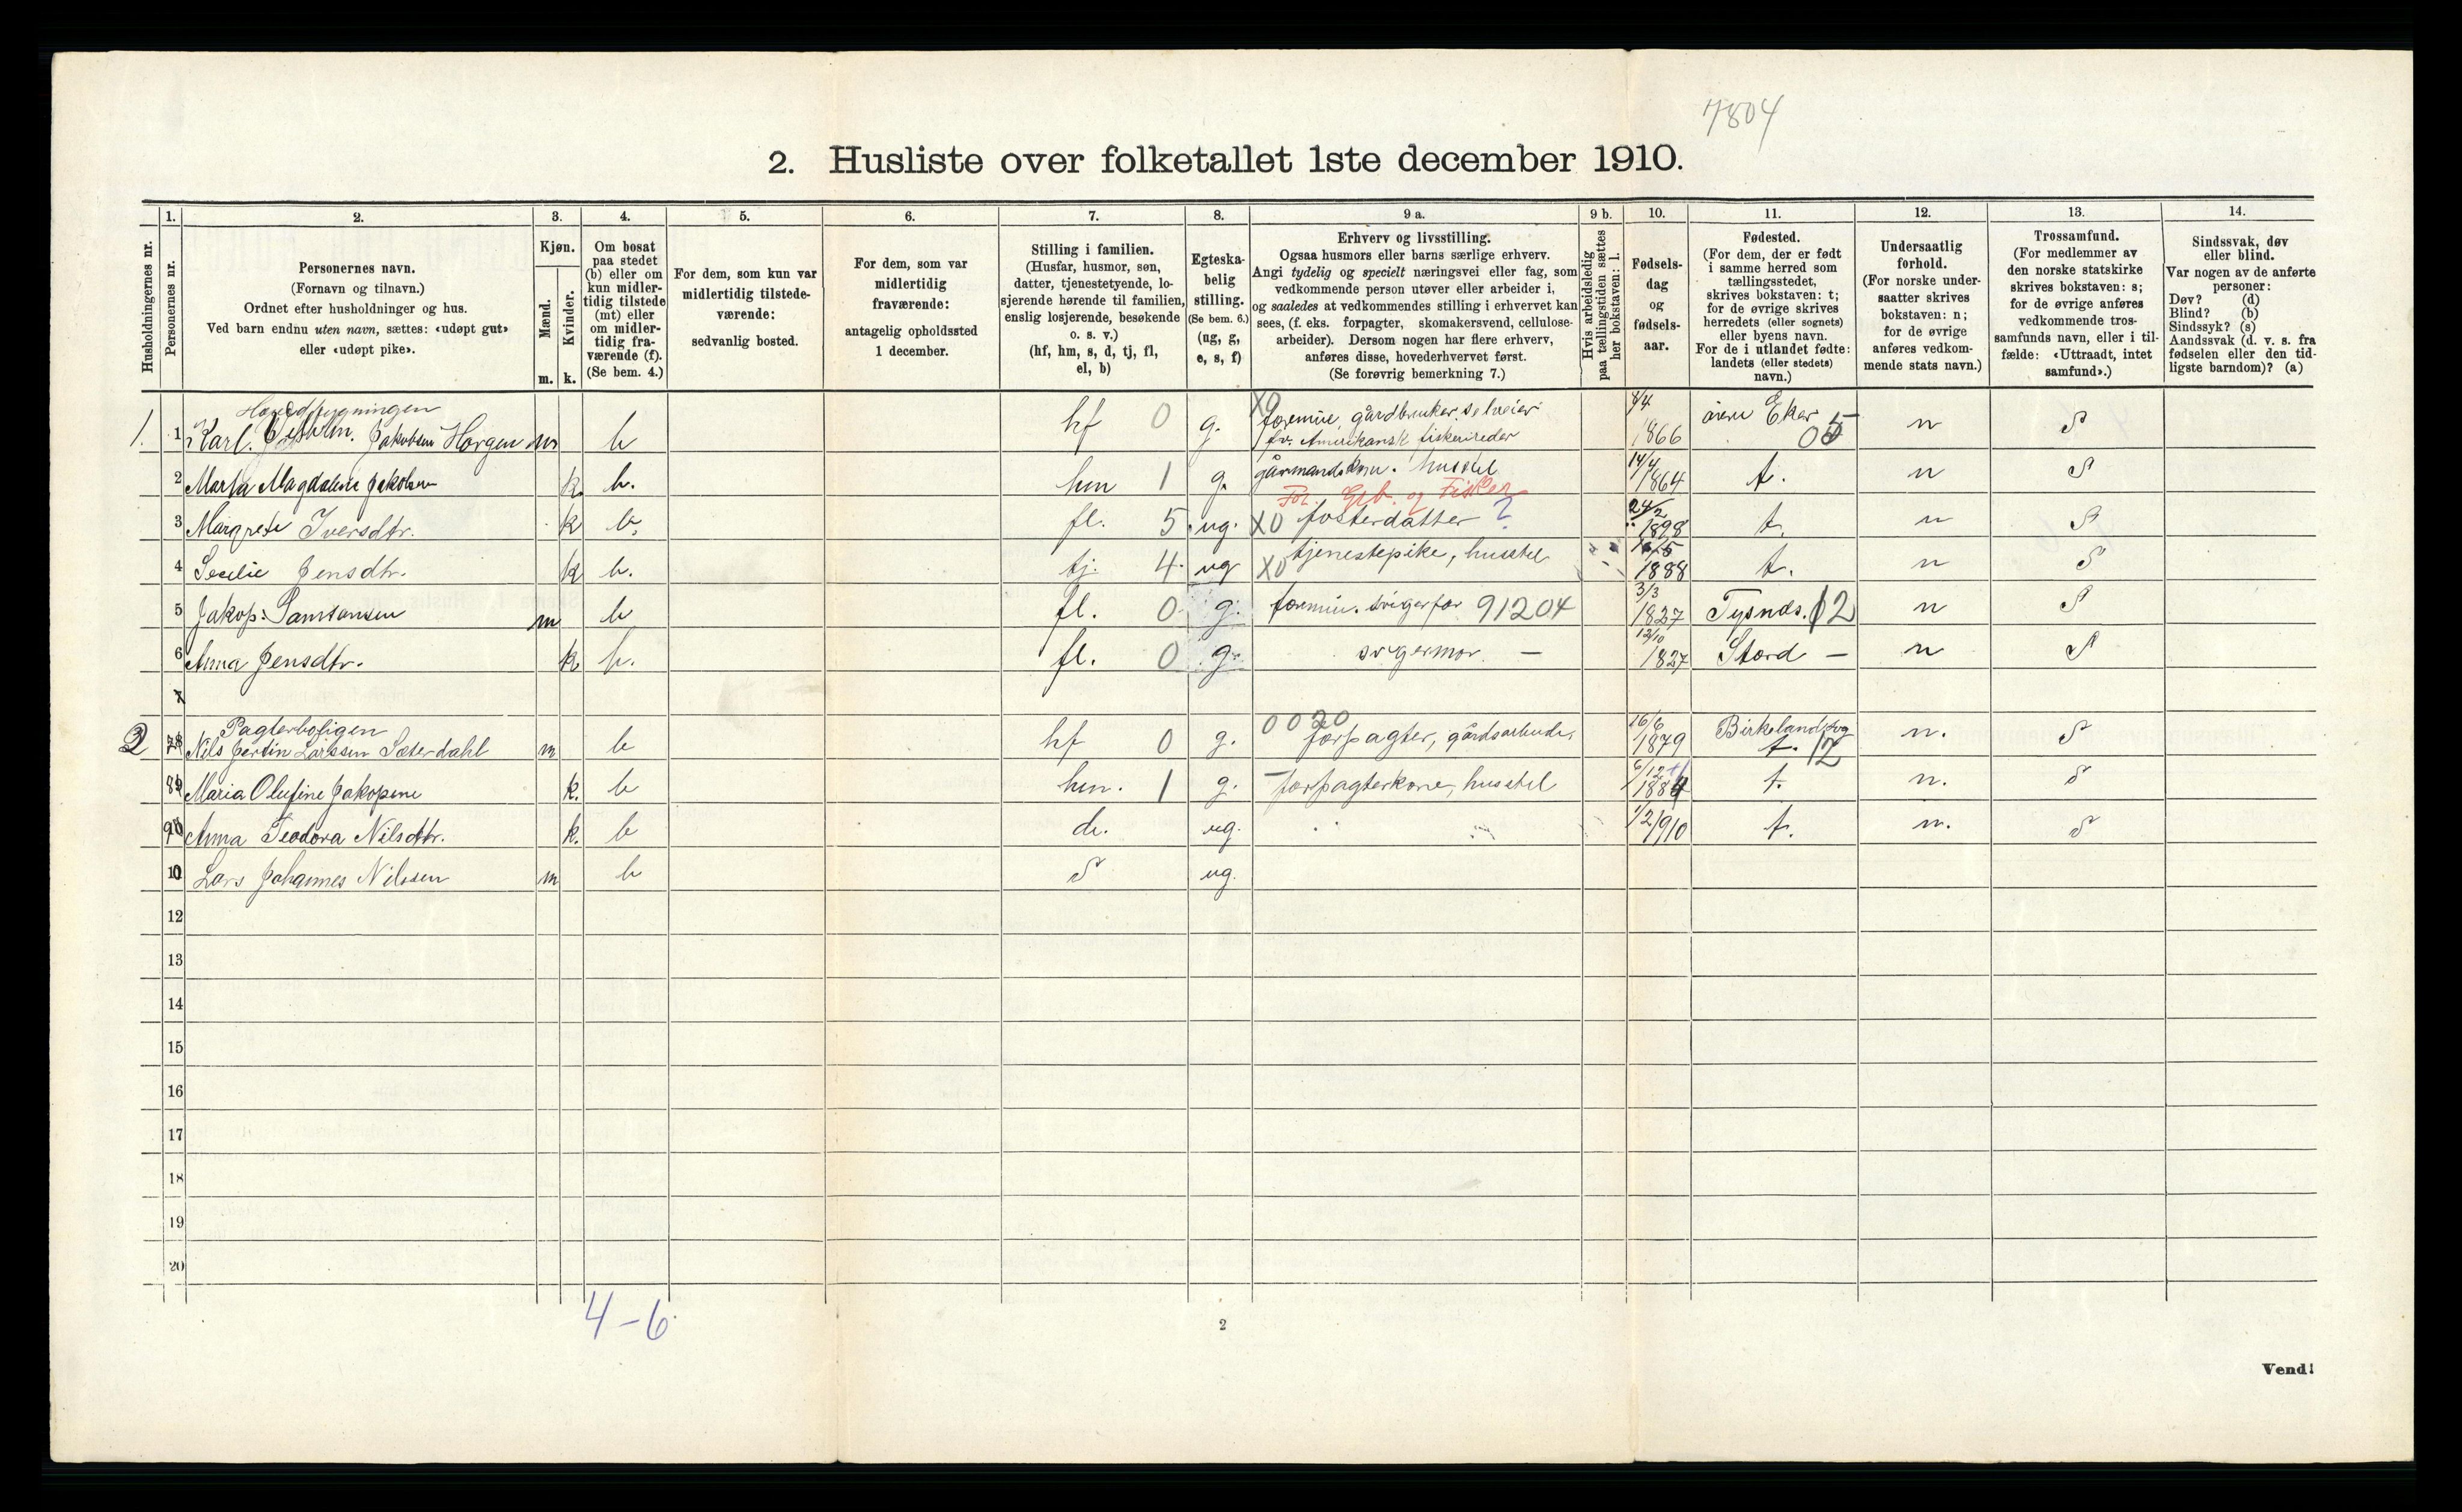 7804
2. Husliste over folketallet 1ste december 1910.
Husholdningernes nr.
1.
Personernes nr.
2.
Personernes navn.
(Fornavn og tilnavn.)
Ordnet efter husholdninger og hus.
Ved barn endnu uten navn, sættes: «udøpt gut»
eller «udøpt pike».
3.
Kjøn.
Mænd.
Kvinder.
m. k.
4.
Om bosat
paa stedet
(b) eller om
kun midler-
tidig tilstede
(mt) eller
om midler-
tidig fra-
værende (f).
(Se bem. 4.)
5.
For dem, som kun var
midlertidig tilstede-
værende:
sedvanlig bosted.
6.
For dem, som var
midlertidig
fraværende:
antagelig opholdssted
1 december.
7.
Stilling i familien.
(Husfar, husmor, søn,
datter, tjenestetyende, lo-
sjerende hørende til familien,
enslig losjerende, besøkende
o. s. v.)
(hf, hm, s, d, tj, fl,
el, b)
8.
Egteska-
belig
stilling.
(Se bem. 6.)
(ug, g,
e, s, f)
9 a.
Erhverv og livsstilling.
Ogsaa husmors eller barns særlige erhverv.
Angi tydelig og specielt næringsvei eller fag, som
vedkommende person utøver eller arbeider i,
og saaledes at vedkommendes stilling i erhvervet kan
sees, (f. eks. forpagter, skomakersvend, cellulose-
arbeider). Dersom nogen har flere erhverv,
anføres disse, hovederhvervet først.
(Se forøvrig bemerkning 7.)
9 b.
Hvis arbeidsledig
paa tællingstiden sættes
her bokstaven: l.
10.
Fødsels-
dag
og
fødsels-
aar.
11.
Fødested.
(For dem, der er født
i samme herred som
tællingsstedet,
skrives bokstaven: t;
for de øvrige skrives
herredets (eller sognets)
eller byens navn.
For de i utlandet fødte:
landets (eller stedets)
navn.)
12.
Undersaatlig
forhold.
(For norske under-
saatter skrives
bokstaven: n;
for de øvrige
anføres vedkom-
mende stats navn.)
13.
Trossamfund.
(For medlemmer av
den norske statskirke
skrives bokstaven: s;
for de øvrige anføres
vedkommende tros-
samfunds navn, eller i til-
fælde: «Uttraadt, intet
samfund».)
14.
Sindssvak, døv
eller blind.
Var nogen av de anførte
personer:
Døv? (d)
Blind? (b)
Sindssyk? (s)
Aandssvak (d. v. s. fra
fødselen eller den tid-
ligste barndom)? (a)
1. 1 Karl. Jakobsen Horgen m b hf 0 g. X0 gårdbruker, selveier 8/4 1866 øvre Eker 05 n S
fv. Amerikansk fiskerireder
2 Marta Magdalene Jakobsen k. b. hm 1 g. husstel 14/4 1864 t. n S
For. Grb. og Fisker
3 Margrete Iversdtr. k b. fl. 5 ug. X0 fosterdatter ? 24/2 1898 t. n S
4 Secelie Jensdtr. k b. tj. 4 ug X0 tjenestepike, husstel 1888 t. n S
5 Jakop Samsonsen m b fl. 0 g. svigerfar 91204 3/3 1827 Tysnds. 12 n S
6 Anna Jensdtr. k b. fl. 0 g. svigermor — 12/10 1827 Stord — n S
7
Pagterboligen
2 7 Nils Jertin Larssen Sæterdahl m b hf 0 g. 0020 forpagter, gårdsarbeide 16/6 1879 Birkeland 12 n. S
8 Maria Olufine Jakopsen k. b hm. 1 g. – forpagterkone, husstel 6/12 188 t. n. S
9 Anna Teodora Nilsdtr. k. b d. ug. 1/2 1910 t. n. S
10 Lars Johannes Nilssen m b S ug.
12
13
14
15
16
17
18
19
20
4-6
2
Vend!